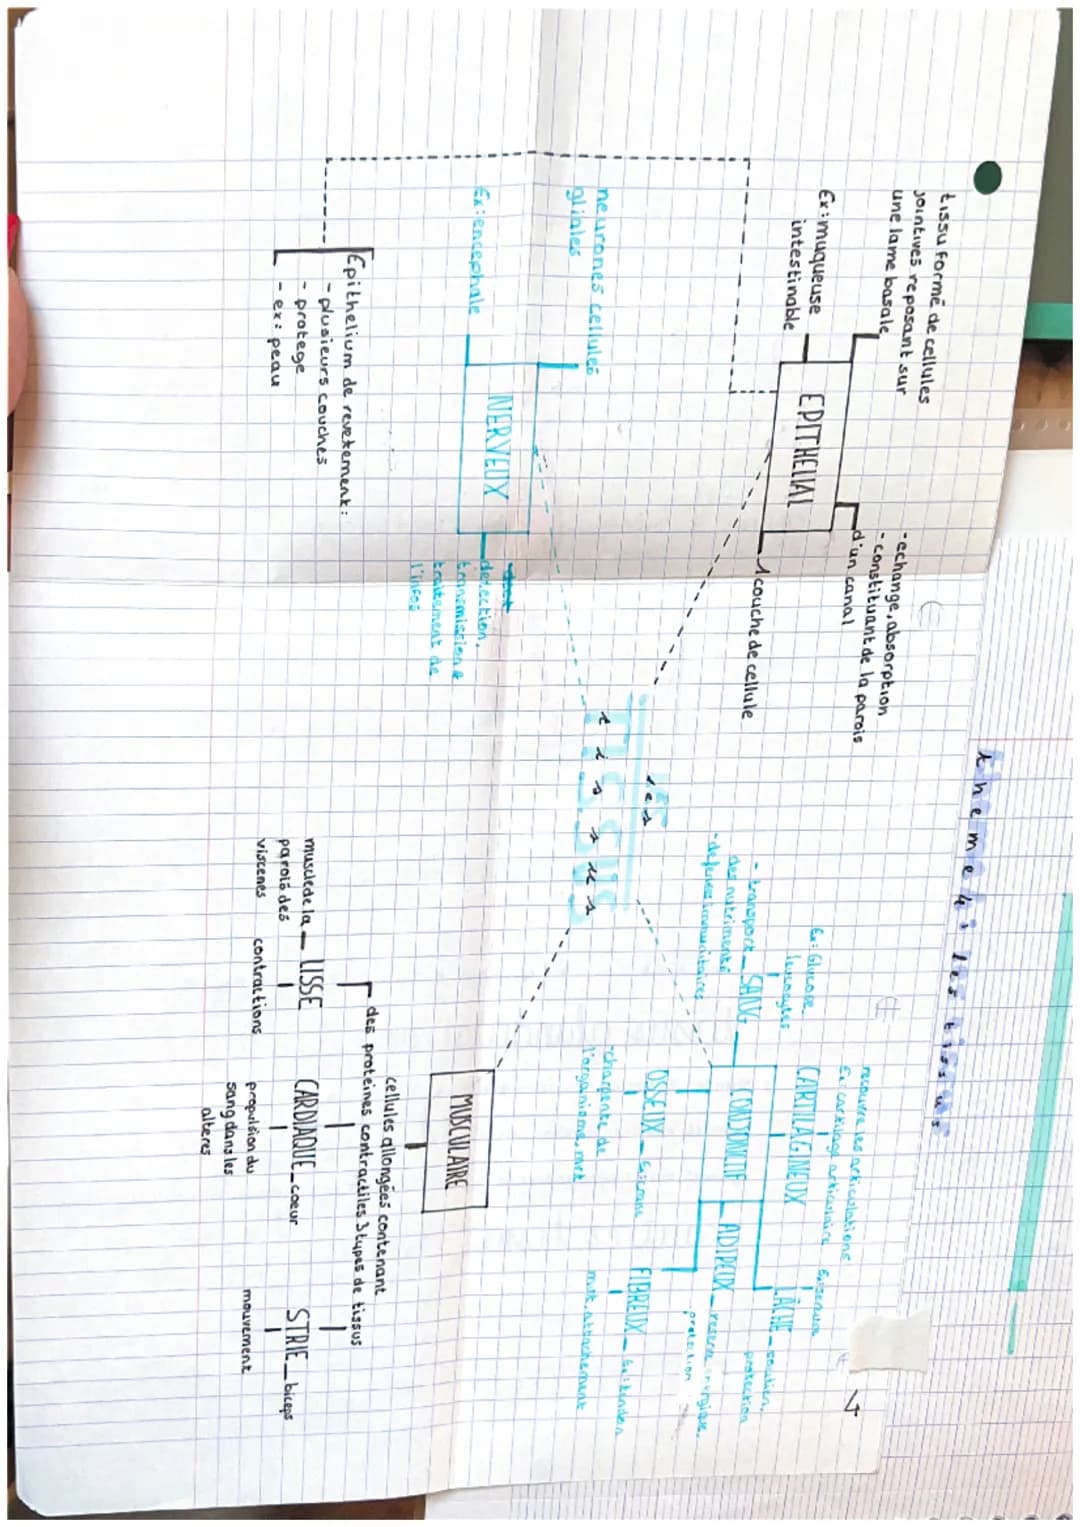 theme 4: les tissus
tissu formé de cellules
jointives reposant sur
une lame basale
Ex: muqueuse
intestinable
EPITHELIAL
- echange, absorption
- constituant de la parois
d'un canal
1 couche de cellule
Epithelium de revetement:
- plusieurs couches
- protege
- ex: peau
neurones cellules
gliales
Ex: encephale
NERVEUX
detection,
transmission &
traitement de
l'infos
les
tissus
recouvre les articulations
Ex: cartilage articulaire
CARTILAGINEUX
Ex: Glucose
leucocytes
- transport
des nutriments
- defense immunitaires
SANG
CONJONCTIF
LÂCHE - soutien,
protection
ADIPEUX - reserve energique,
protection
OSSEUX
- charpente de
l'organisme, mvt
FIBREUX - Ex: tendon
mvt, attachement
MUSCULAIRE
cellules allongées contenant
des proteines contractiles 3 types de tissus
muscle de la
parois des
visceres
LISSE
contractions
CARDIAQUE - coeur
propulsion du
sang dans les
alteres
STRIE - biceps
mouvement